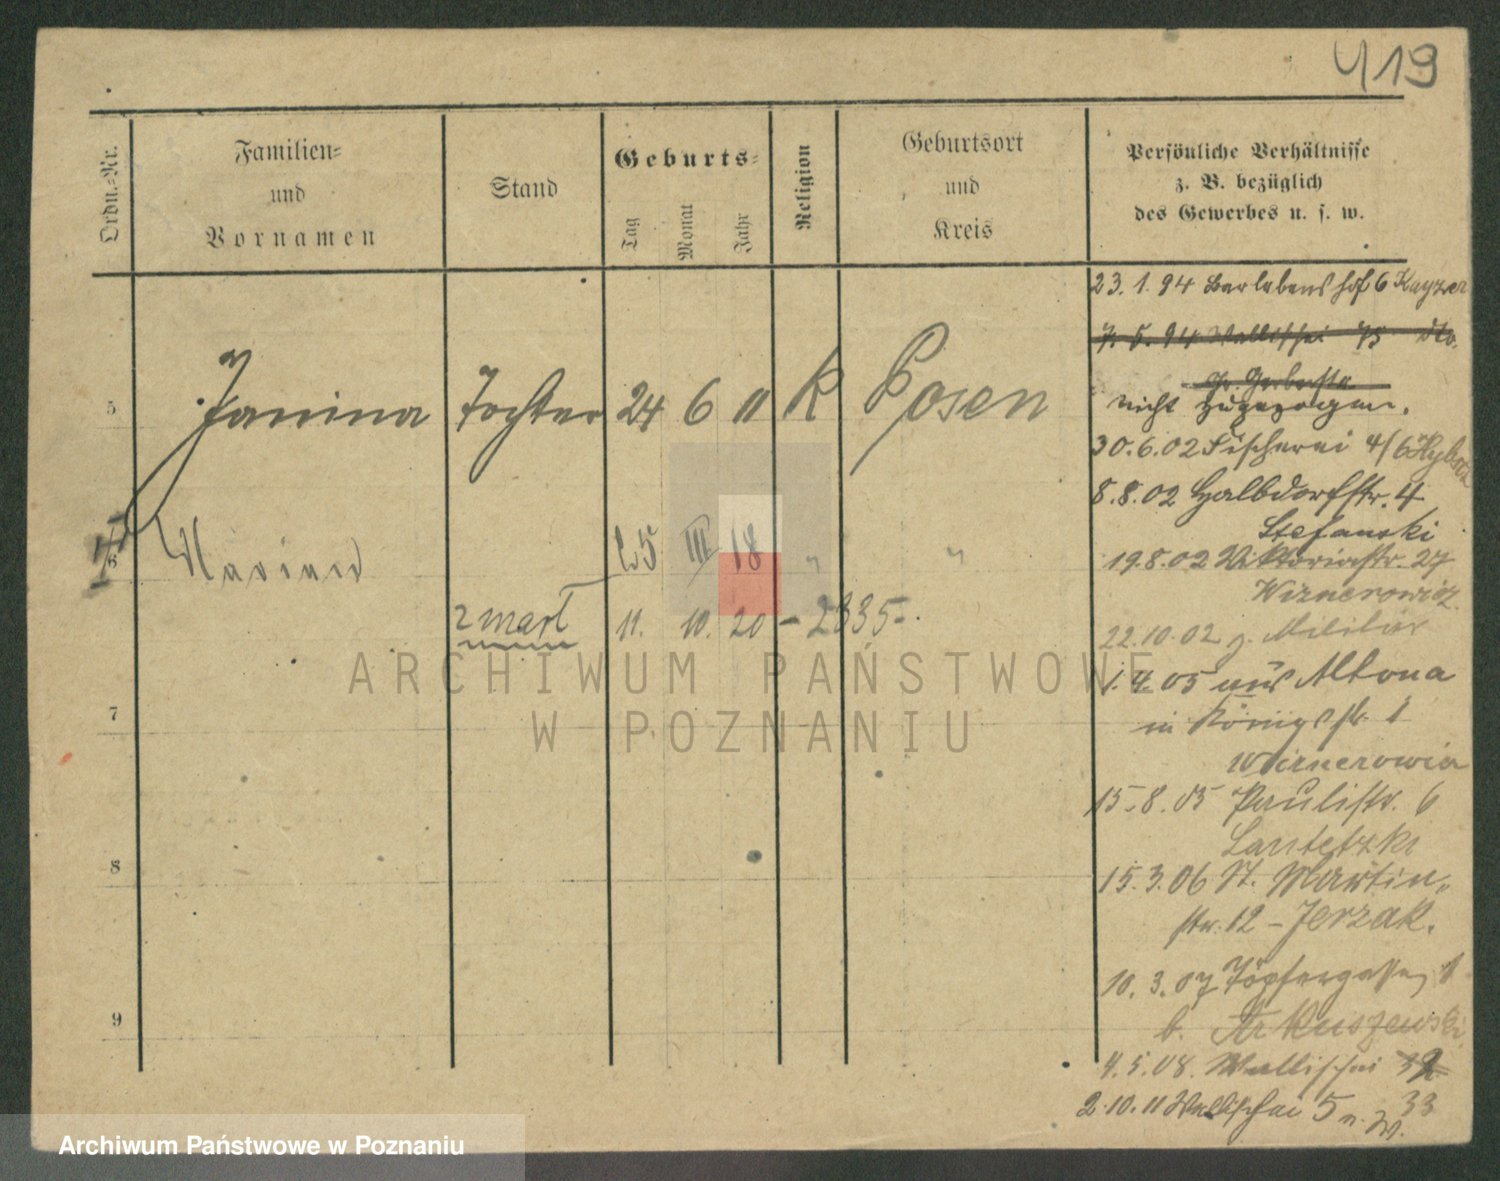 419
Ordn.-Nr.
Familien-
und
Vornamen
Stand
Geburts-
Tag
Monat
Jahr
Religion
Geburtsort
und
Kreis
Persönliche Verhältnisse
z. B. bezüglich
des Gewerbes u. s. w.
5 Janina Tochter 24 6 11 K Posen
6 Marian 25 III 18 " "
zmarł 11. 10. 20 - 2335-.
7
8
9
23. 1. 94 Berlebenshof 6 Kayzer
7. 5. 94 Wallischei 75 dto.
Gr. Gerberstr
nicht zugezogen.
30.6.02 Fischerei 4/6
8.8.02 Halbdorfstr. 4
Stefanski
19.8.02 Viktoriastr. 27
Wiznerowicz
22.10.02 z. Militär
1.4.05 aus Altona
in Königstr. 1
Wiznerowicz
15.8.05 Paulistr. 6
15.3.06 St. Martin-
str. 12 - Jerzak.
10. 3. 07 Töpfergasse 1
b. Arkuszewski
4.5.08. Wallischei 32
2.10.11 Wallischei 5 n. W. 33
ARCHIWUM PAŃSTWOWE
W POZNANIU
Archiwum Państwowe w Poznaniu